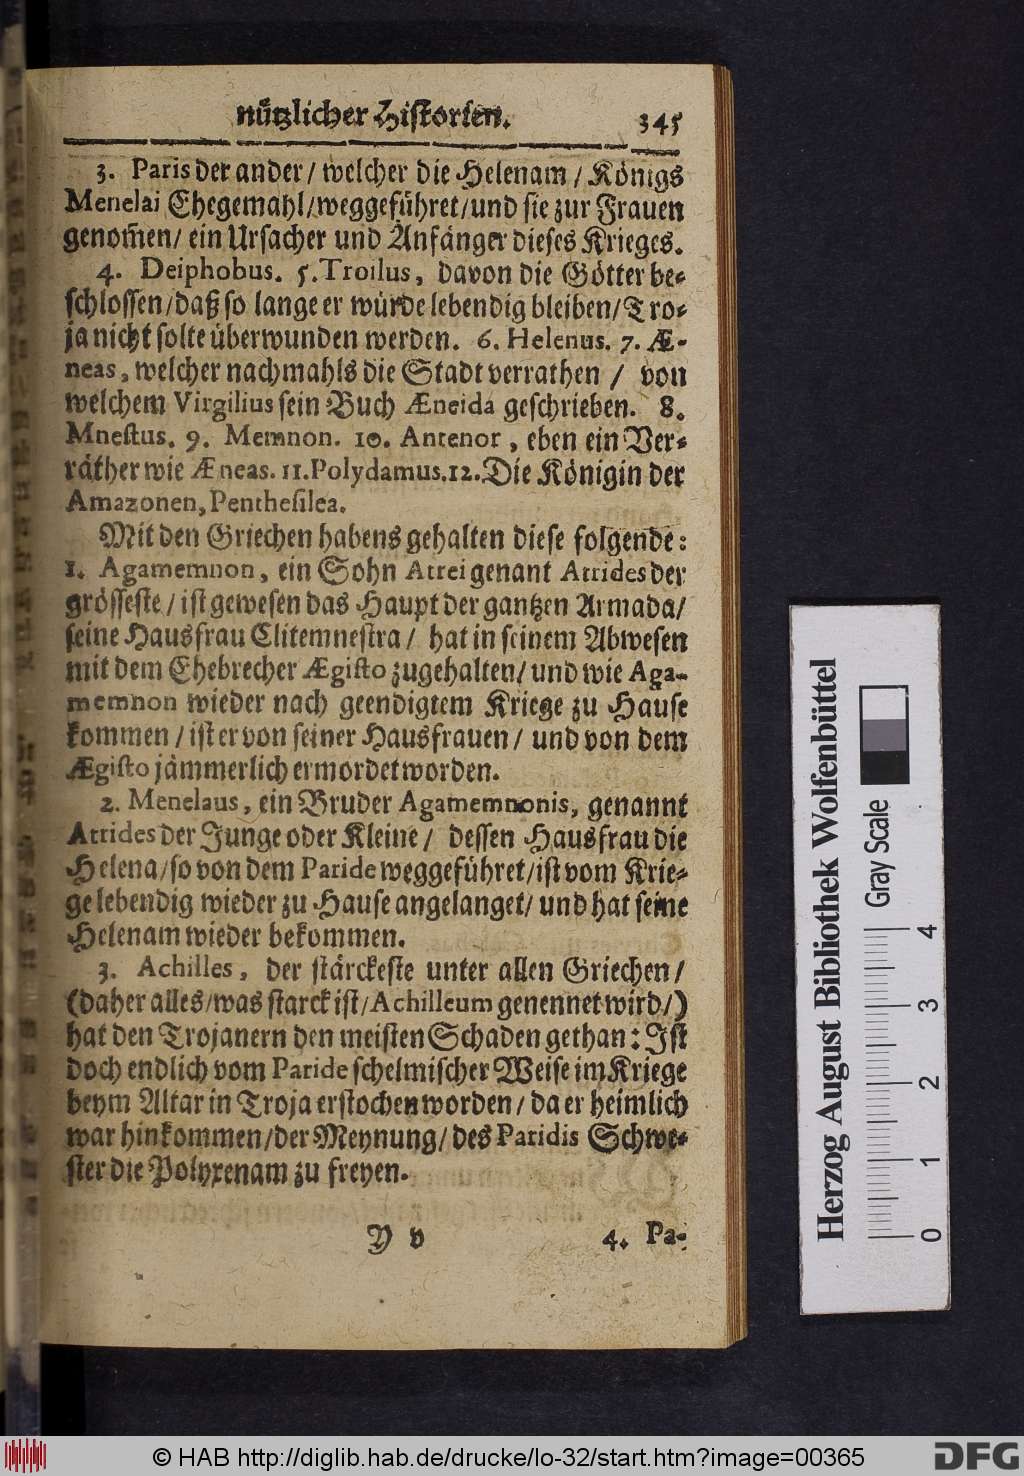 nützlicher Historien. 345
3. Paris der ander / welcher die Helenam / Königs
Menelai Ehegemahl/weggeführet/und sie zur Frauen
genom̃en/ ein Ursacher und Anfänger dieses Krieges.
4. Deiphobus. 5. Troilus, davon die Götter be-
schlossen/daß so lange er würde lebendig bleiben/Tro-
ja nicht solte überwunden werden. 6. Helenus. 7. Æ-
neas, welcher nachmahls die Stadt verrathen / von
welchem Virgilius sein Buch Æneida geschrieben. 8.
Mnestus. 9. Memnon. 10. Antenor, eben ein Ver-
räther wie Æneas. 11. Polydamus. 12. Die Königin der
Amazonen, Penthesilea.
Mit den Griechen habens gehalten diese folgende:
1. Agamemnon, ein Sohn Atrei genant Atrides der
grösseste / ist gewesen das Haupt der gantzen Armada/
seine Hausfrau Clitemnestra / hat in seinem Abwesen
mit dem Ehebrecher Ægisto zugehalten/ und wie Aga-
memnon wieder nach geendigtem Kriege zu Hause
kommen / ist er von seiner Hausfrauen / und von dem
Ægisto jämmerlich ermordet worden.
2. Menelaus, ein Bruder Agamemnonis, genannt
Atrides der Junge oder Kleine / dessen Hausfrau die
Helena/so von dem Paride weggeführet/ist vom Krie-
ge lebendig wieder zu Hause angelanget/ und hat seine
Helenam wieder bekommen.
3. Achilles, der stärckeste unter allen Griechen /
(daher alles/was starck ist/Achilleum genennet wird/)
hat den Trojanern den meisten Schaden gethan: Ist
doch endlich vom Paride schelmischer Weise im Kriege
beym Altar in Troja erstochen worden / da er heimlich
war hinkommen/der Meynung/ des Paridis Schwe-
ster die Polyxenam zu freyen.
Y v 4. Pa-
Herzog August Bibliothek Wolfenbüttel
Gray Scale
0 1 2 3 4
© HAB http://diglib.hab.de/drucke/lo-32/start.htm?image=00365
DFG